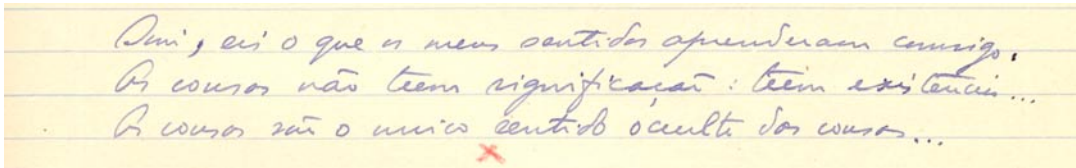 Sim, eis o que os meus sentidos aprenderam comsigo.
As cousas não teem significação: teem existencia...
As cousas são o unico sentido occulto das cousas...